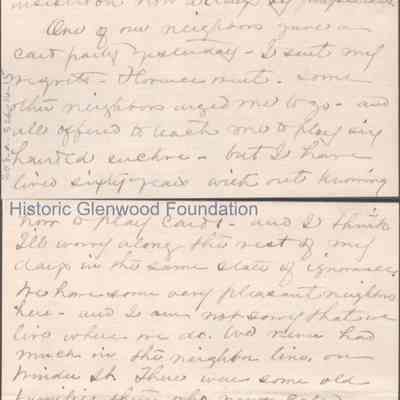 One of our neighbors gave a
card party yesterday - I sent my
regrets - Florence went. Some
other neighbors urged me to go - and
all offered to teach me to play six
handed euchre - but I have
lived sixty years with out knowing
Historic Glenwood Foundation
how to play Cards - and I think
I'll worry along the rest of my
days in the same state of ignorance.
We have some very pleasant neighbors
here - and I am not sorry that we
live where we do. We never had
much in the neighbor line, on
St. There were some old
families there who never